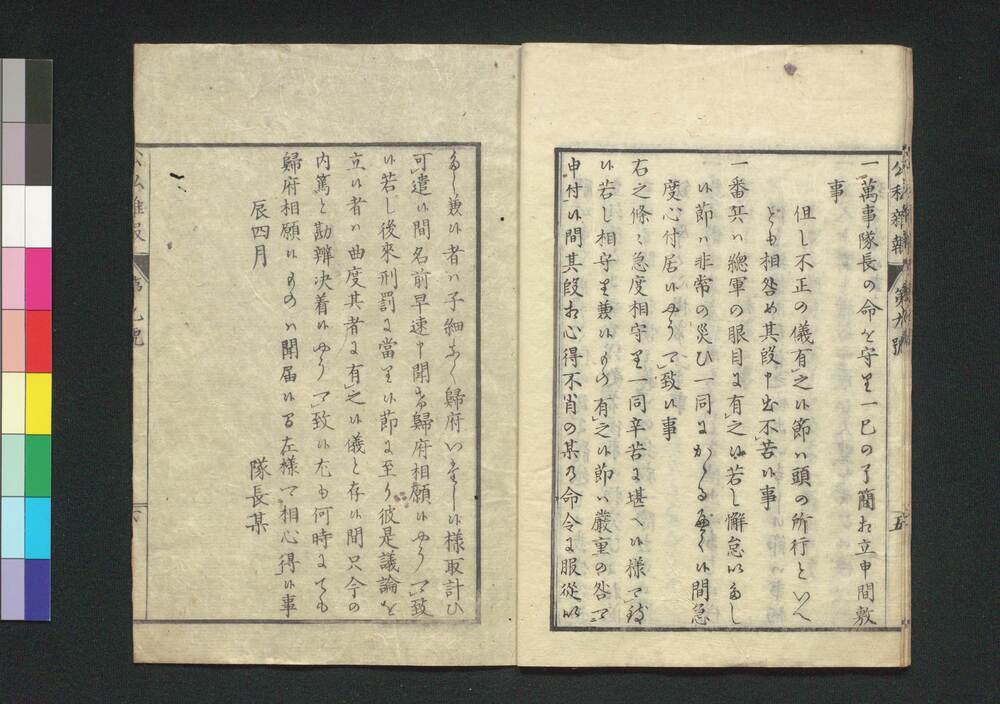 公私雜報 第九號 五
一萬事隊長の命を守り一已の了簡相立申間敷
事
但し不正の儀有之候節ハ頭の所行といへ
とも相咎め其段申出不苦候事
一番兵ハ總軍の眼目に有之候若し懈怠いたし
候節ハ非常の災ひ一同にかゝる候間急
度心付居候やう可致候事
右之條々急度相守り一同辛苦に堪へ候様可致
候若し相守り兼候もの有之候節ハ嚴重の咎可
申付候間其段相心得不肖の某乃命令に服從い
兼候者ハ子細なく歸府いたし候様取計ひ
可遣候間名前早速申聞歸府相願候やう可致
候若し後來刑罰に當り候節に至り彼是議論を
立候者ハ曲度其者に有之候儀と存候間只今の
内篤と勘辨决着候やう可致候尤も何時にても
歸府相願候ものハ聞届候左様可相心得候事
辰四月
隊長某